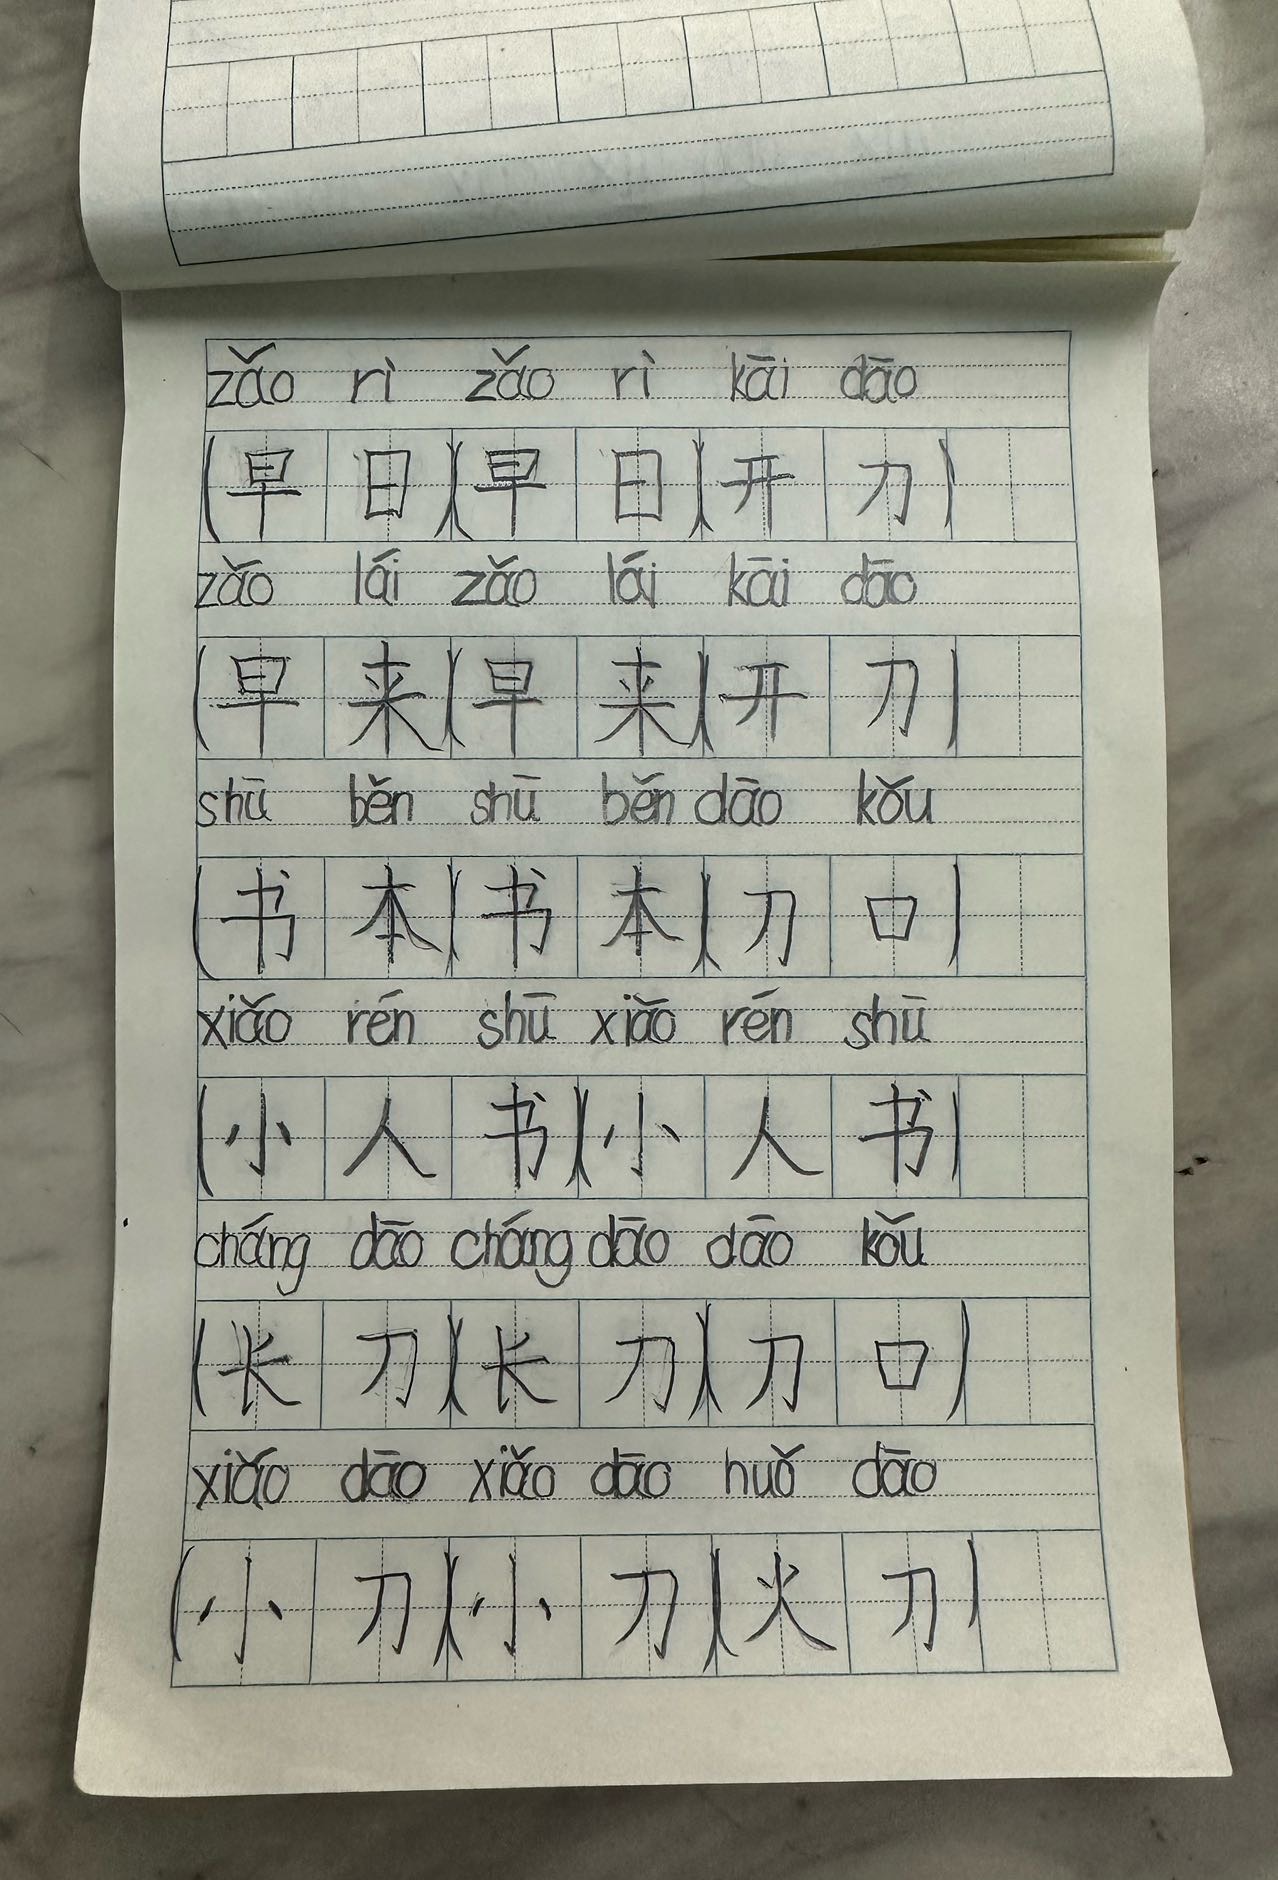 zǎo rì zǎo rì kāi dāo
(早日)(早日)(开刀)
zǎo lái zǎo lái kāi dāo
(早来)(早来)(开刀)
shū běn shū běn dāo kǒu
(书本)(书本)(刀口)
xiǎo rén shū xiǎo rén shū
(小人书)(小人书)
cháng dāo cháng dāo dāo kǒu
(长刀)(长刀)(刀口)
xiǎo dāo xiǎo dāo huǒ dāo
(小刀)(小刀)(火刀)